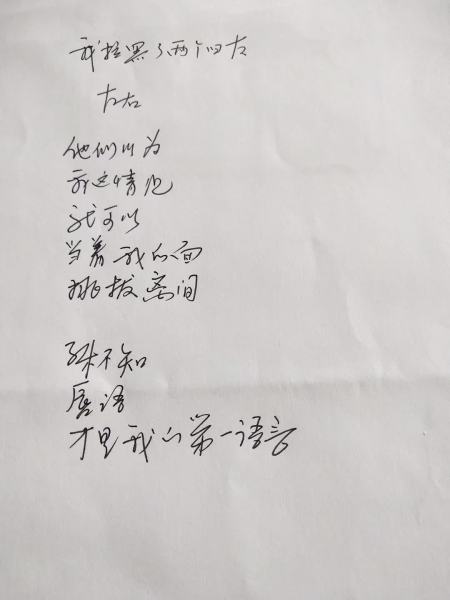 我拉黑了两个旧友
左右
他们以为
我这情况
就可以
当着我的面
挑拨离间
殊不知
唇语
才是我的第一语言